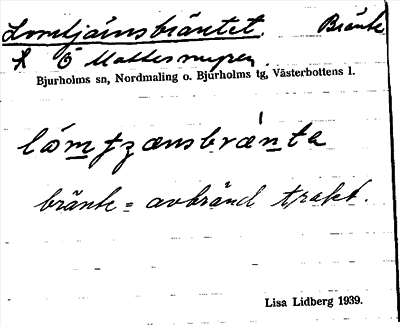 Lomtjärnsbräntet. Bränte
X Ö Mattesmyren
Bjurholms sn, Nordmaling o. Bjurholms tg, Västerbottens l.
bränte = avbränd trakt.
Lisa Lidberg 1939.